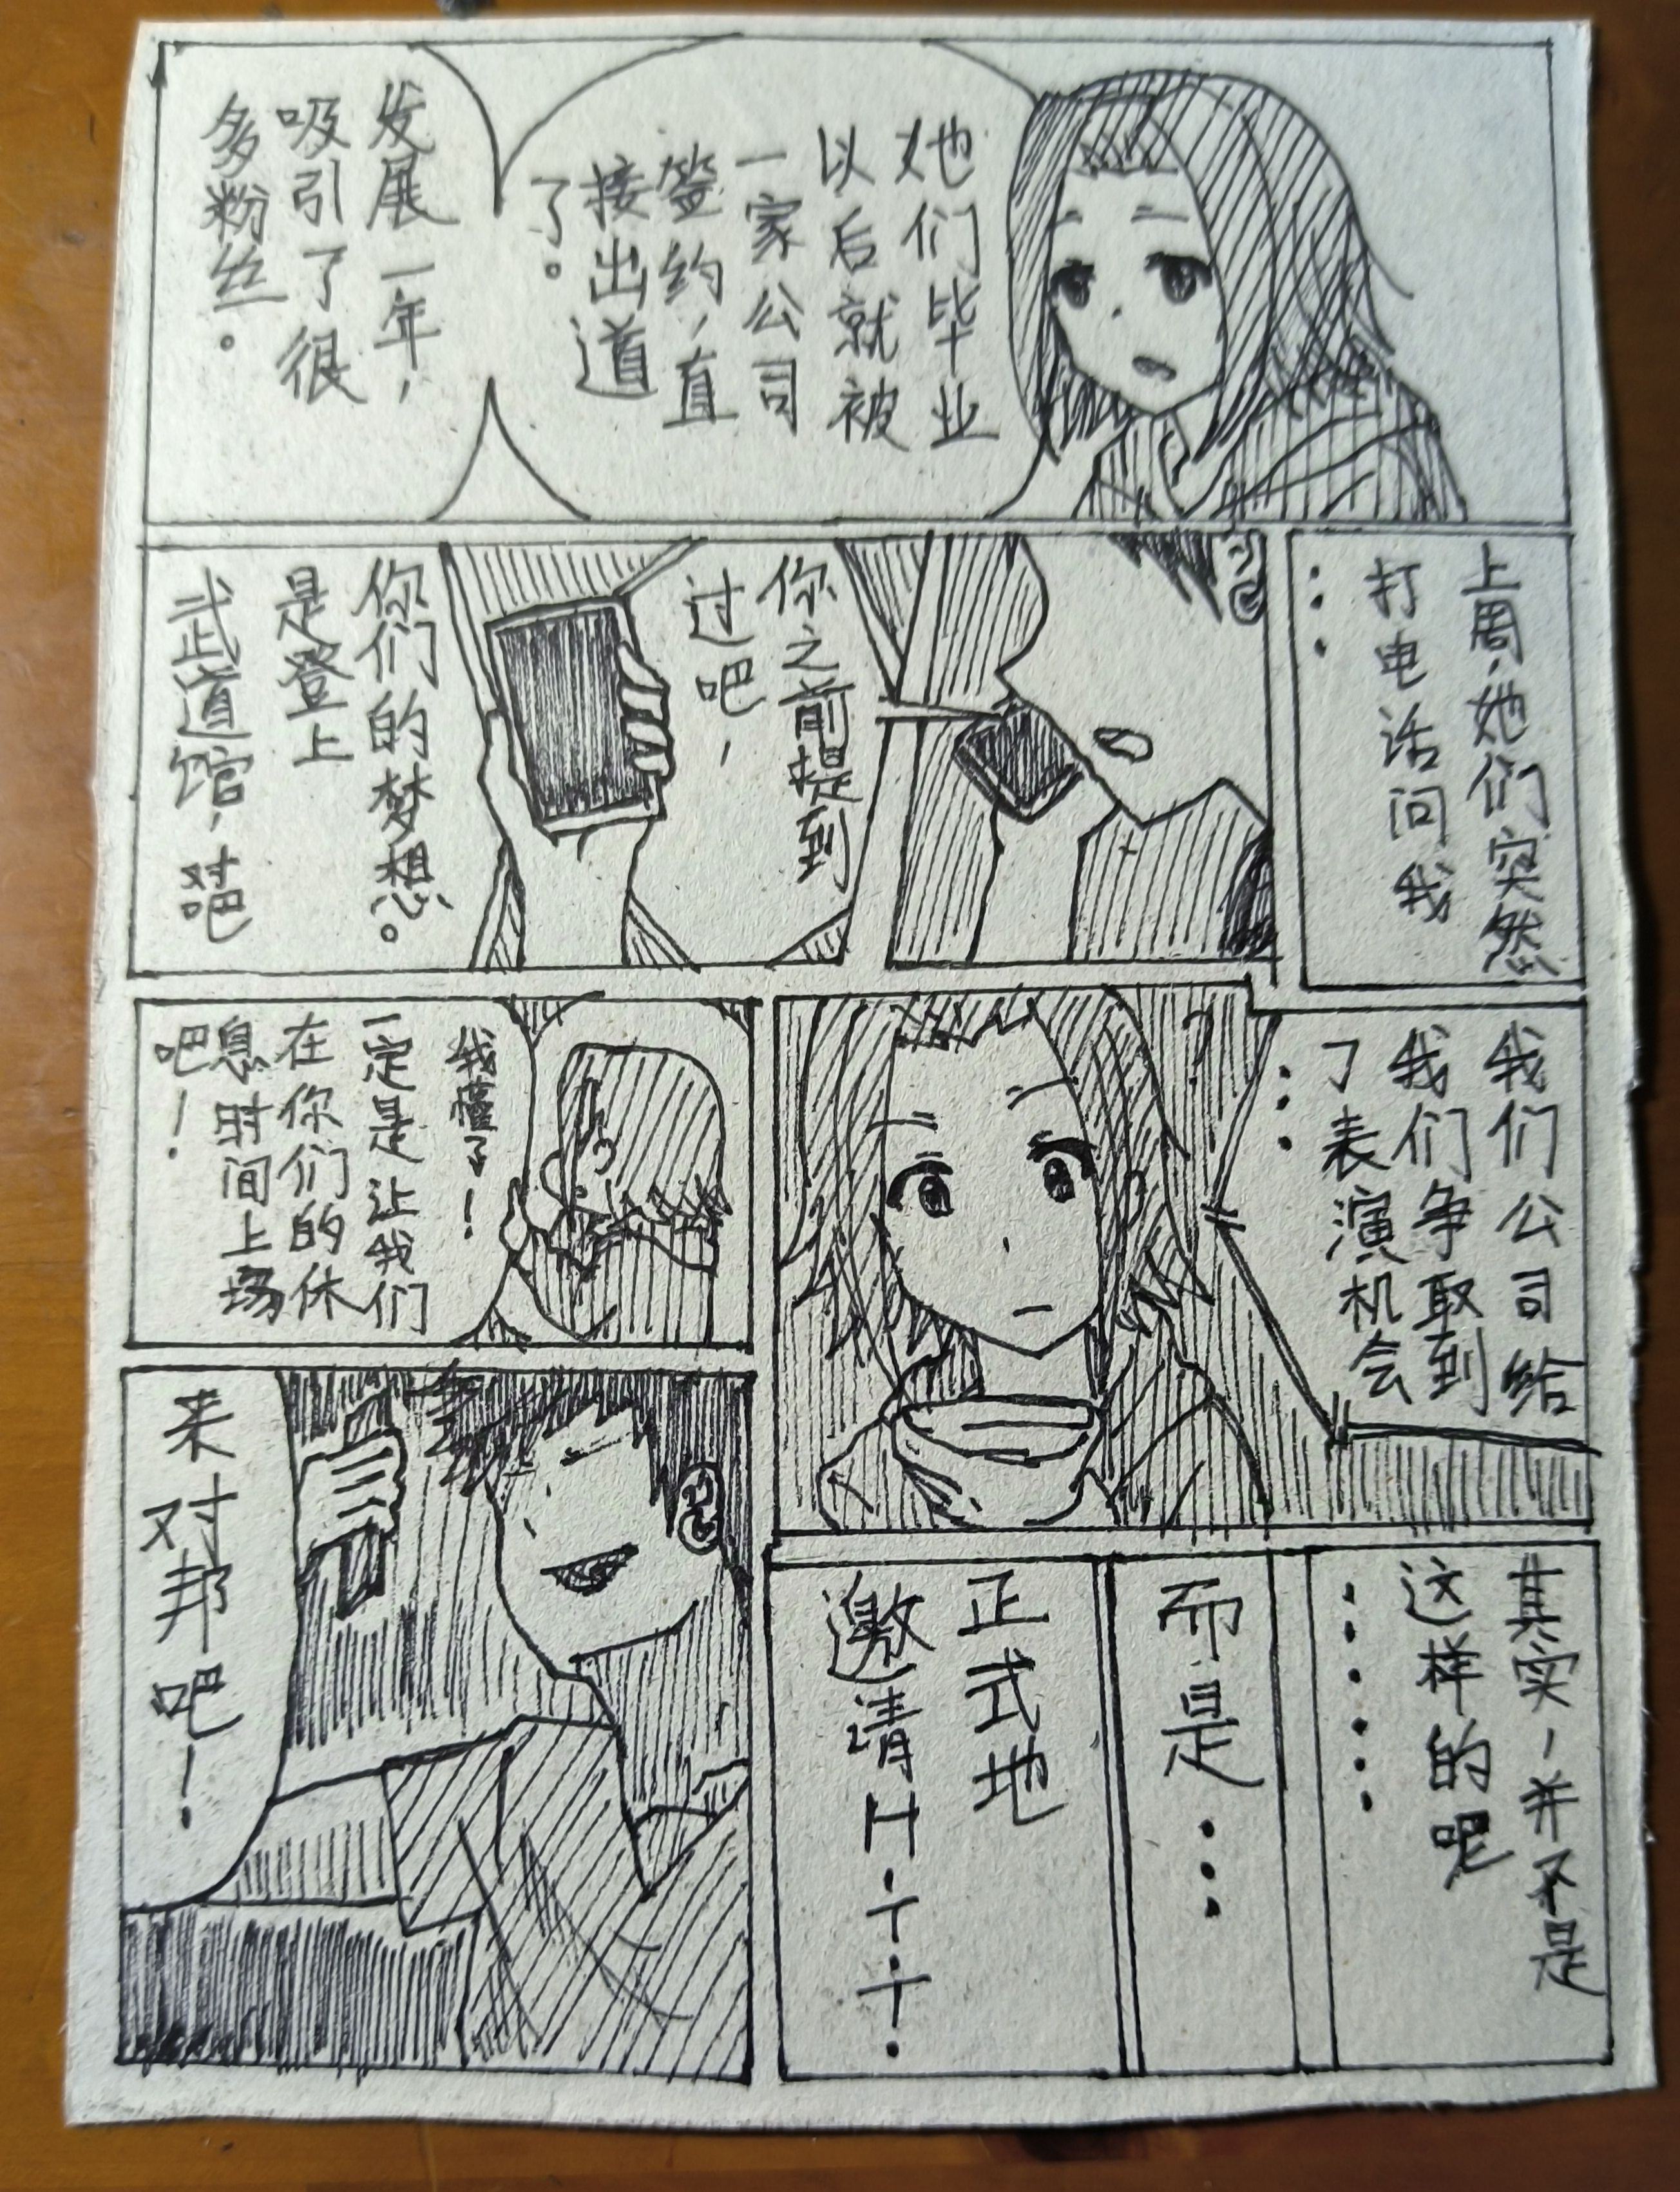 她们毕业
以后就被
一家公司
签约，直
接出道
了。
发展一年，
吸引了很
多粉丝。
上周，她们突然
打电话问我
…
你之前提到
过吧，
你们的梦想。
是登上
武道馆，对吧
我们公司给
我们争取到
了表演机会
…
我懂了！
一定是让我们
在你们的休
息时间上场
吧！
其实，并不是
这样的呢
……
而是…
正式地
邀请H.T.T.
来对邦吧！